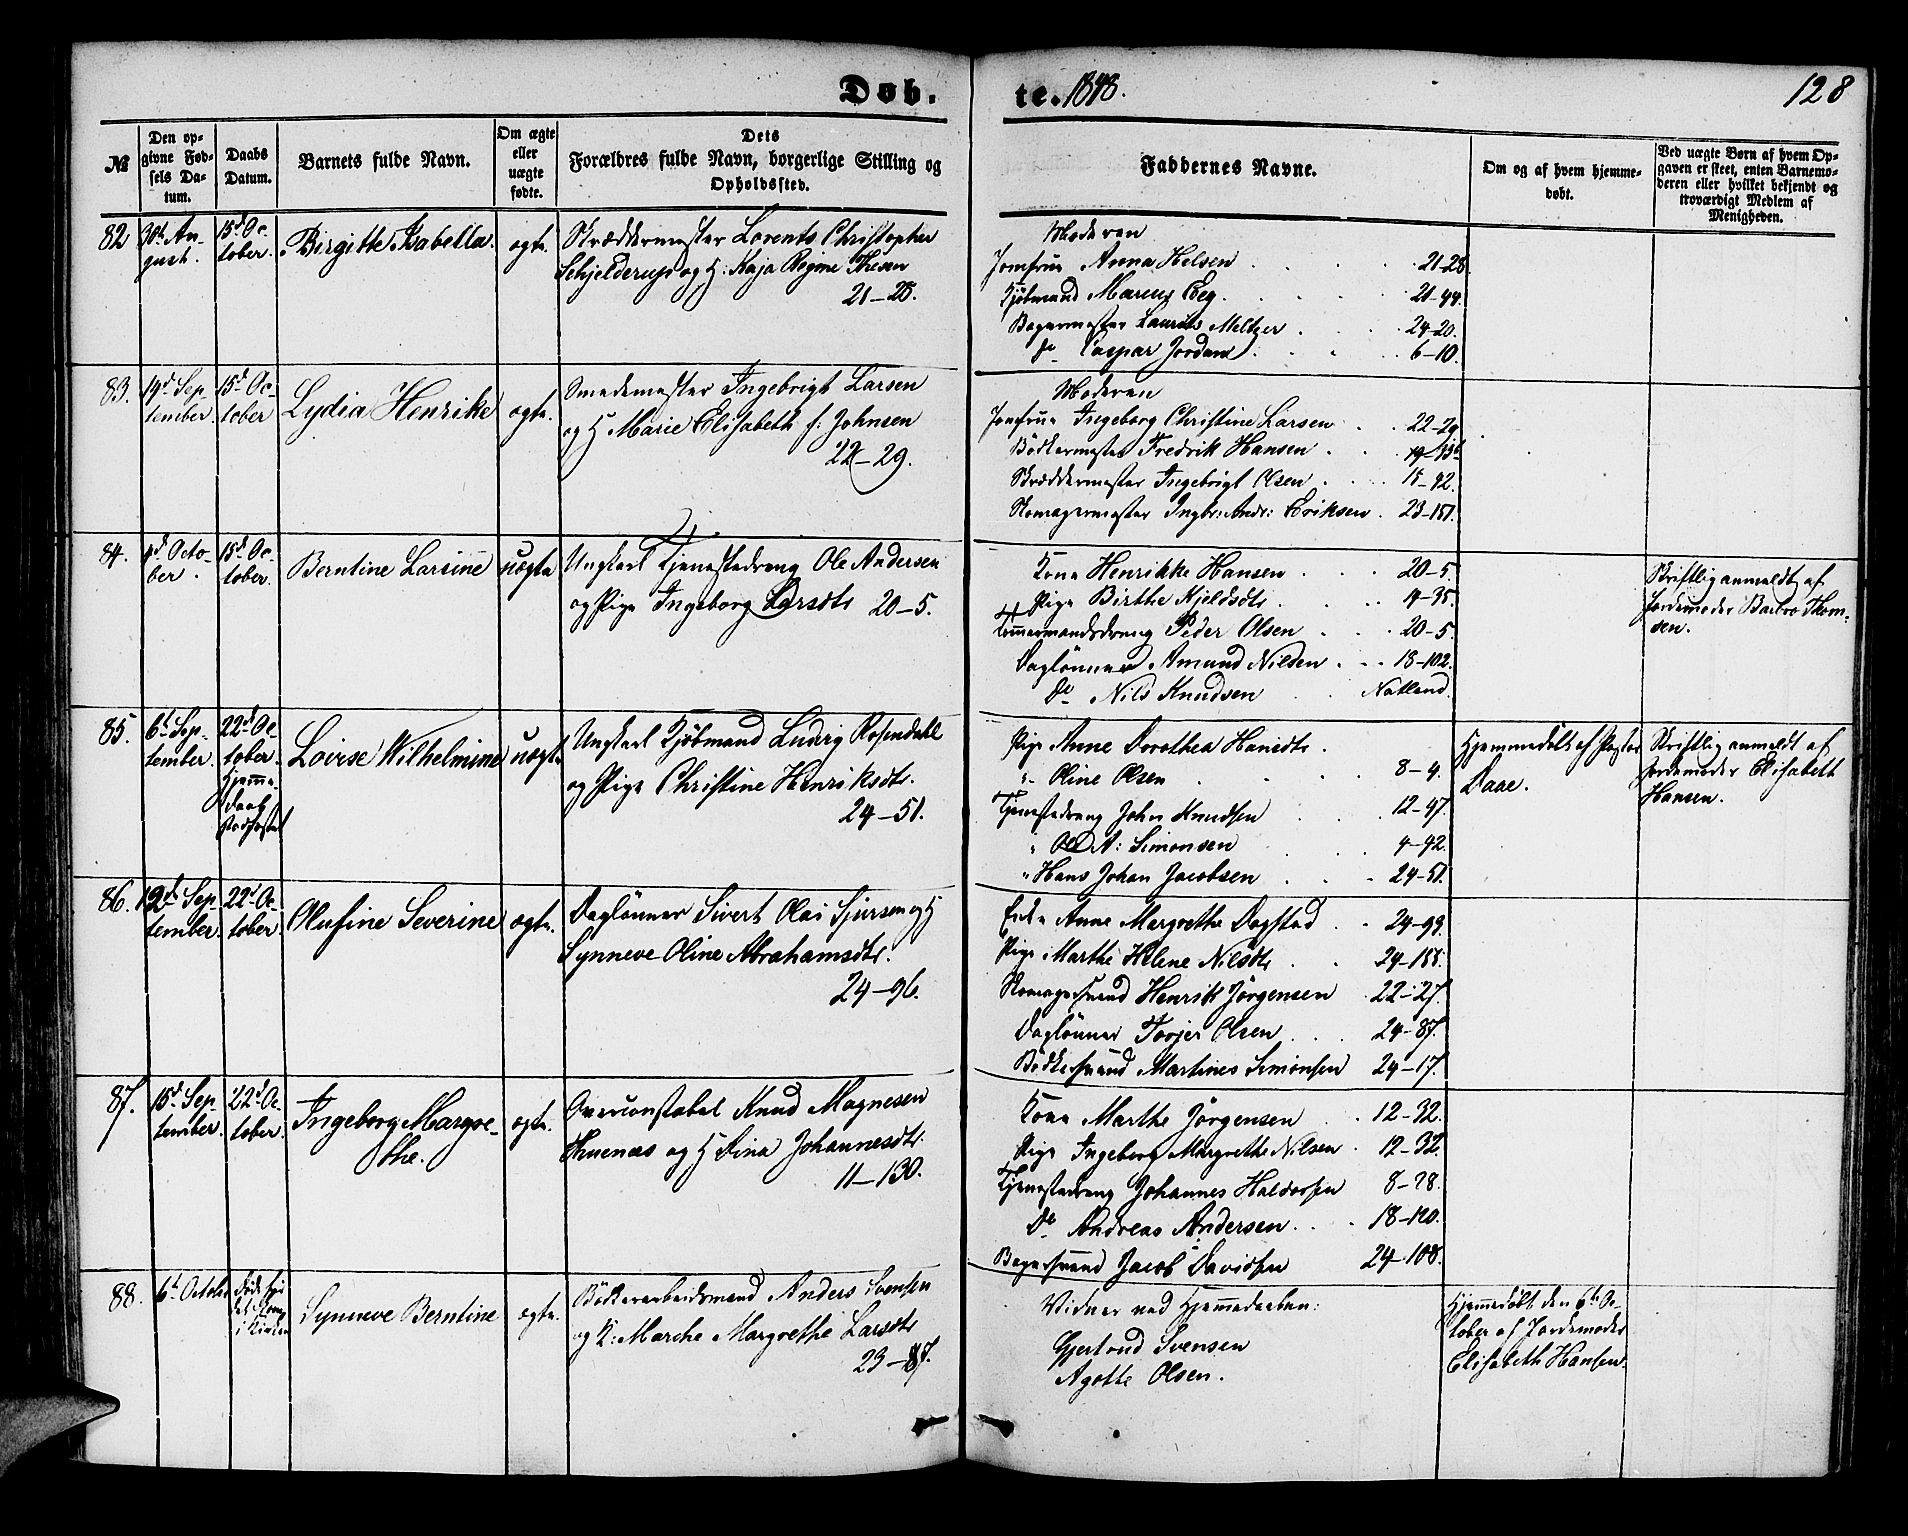 Døb.
te. 1848.
128
№
Den op-
givne Fød-
sels Da-
tum.
Daabs
Datum.
Barnets fulde Navn.
Om ægte
eller
uægte
fødte.
Dets
Forældres fulde Navn, borgerlige Stilling og
Opholdssted.
Faddernes Navne.
Om og af hvem hjemme-
døbt.
Ved uægte Børn af hvem Op-
gaven er skeet, enten Barnemo-
deren eller hvilket bekjendt og
troværdigt Medlem af
Menigheden.
82
30t Au-
gust.
15d Oc-
tober.
Birgitte Isabella.
ægte.
Skræddermester Lorents Christopher
Schjelderup og H: Kaja Regine Thesen
21-28.
Moderen
Jomfrue Anna Helsen 21-28.
Kjøbmand Marcus Eeg. 21-44.
Bagermester Laurits Meltzer 24-20.
do Caspar Jordan 6-10.
83.
14d Sep-
tember.
15d Oc-
tober
Lydia Henrike
ægte.
Smedemester Ingebrigt Larsen
og H Marie Elisabeth f: Johnsen
22-29.
Moderen
Jomfrue Ingeborg Christine Larsen 22-29
Bødkermester Fredrik Hansen
Skræddermester Ingebrigt Olsen 15-42.
Skomagermester Ingbr: Andr: Eriksen. 23-151.
84.
4d Octo-
ber.
15d Oc-
tober.
Berntine Larsine
uægte
Ungkarl Tjenestedreng Ole Andersen
og Pige Ingeborg Larsdtr 20-5.
Kone Henrikke Hansen 20-5.
Pige Birthe Kjeldsdtr. 4-35.
Tømmermandsdreng Peder Olsen 20-5.
Daglønner Amund Nilsen 18-102.
do Nils Knudsen Natland.
Skriftlig anmeldt af
Jordemoder Barbro Thom-
sen.
85.
6t Sep-
tember.
22d Oc-
tober.
Hjemme-
daab
Lovise Wilhelmine
uægte
Ungkarl Kjøbmand Ludvig Rosendahl
og Pige Christine Henriksdtr.
24-51.
Pige Anne Dorothea Hansdtr.
" Oline Olsen 8-4.
Tjenestedreng John Knudsen 12-47.
" Ole A: Simonsen 4-42.
" Hans Johan Jacobsen 24-51.
Hjemmedøbt af Pastor
Daae.
Skriftlig anmeldt af
Jordemoder Elisabeth
Hansen.
86.
12d Sep-
tember.
22d Oc-
tober.
Olufine Severine
ægte.
Daglønner Sivert Olai Sjursen og H
Synneve Oline Abrahamsdtr.
24-96.
Enke Anne Margrethe Dagstad 24-99.
Pige Marthe Helene Nilsdtr 24-188.
Skomagersvend Henrik Jørgensen 22-27.
Daglønner Torjer Olsen 24-87.
Bødkersvend Martines Simonsen 24-17.
87.
15d Sep-
tember.
22d Oc-
tober.
Ingeborg Margre-
the.
ægte.
Overconstabel Knud Magnesen
Thuenæs og H Dina Johannesdtr.
11-130.
Kone Marthe Jørgensen 12-32.
Pige Ingeborg Margrethe Nilsen 12-32.
Tjenestedreng Johannes Haldorsen 8-28.
do Andreas Andersen 18-120.
Bagersvend Jacob Davidsen 24-108.
88.
6t October
i Kirken
Synneve Berntine
ægte.
Bødkerarbeidsmand Anders Svensen
og K: Marthe Margrethe Larsdtr
23-87.
Vidner ved Hjemmedaaben:
Gjertrud Svensen
Agathe Olsen.
Hjemmedøbt den 6te Oc-
tober af Jordemoder
Elisabeth Hansen.